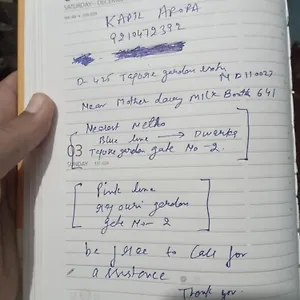 SATURDAY - DECEMBER
KAPIL AROPA
9210472392
D 425 Tagore garden extn
N D 110027
Near Mother dairy Milk Booth 641
Nearest Metro
Blue line → Dwarka
03 Tagore garden gate No - 2
SUNDAY
Pink line
rajouri garden
gate No - 2
be free to Call for
assistance
Thank you